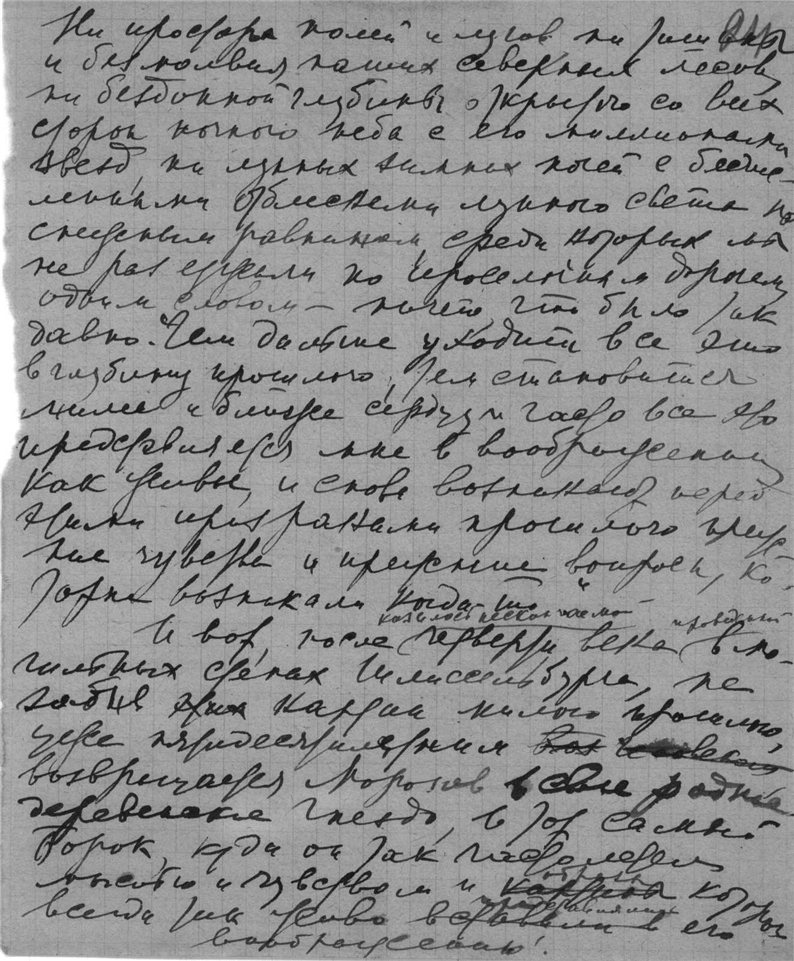 Ни простора полей и лугов ни тишины
и безмолвия наших северных лесов,
ни бездонной глубины открытого со всех
сторон ночного неба с его миллионами
звезд, ни лунных зимних ночей с бесчис-
ленными отблесками лунного света на
снежным равнинам, среди которых мы
не раз езжали по проселочным дорогам,
одним словом — ничего, что было так
давно. Чем дальше уходит все это
в глубину прошлого, тем становится
милее и ближе сердцу и часто все это
представляется мне в воображении
как живые, и снова возникают перед
этими призраками прошлого преж-
ние чувства и прежние вопросы, ко-
торые возникали когда-то"
казалось бесконечно проведенной
И вот, после четверти века в мо-
гильных стенах Шлиссельбурга, не
забыв этих картин милого прошлого,
уже пятидесятилетним
возвращается Морозов в свое родное
деревенское гнездо, в тот самый
Борок, куда он так часто летел
мыслью и чувством и которое
всегда так живо вставали в его
воображении!